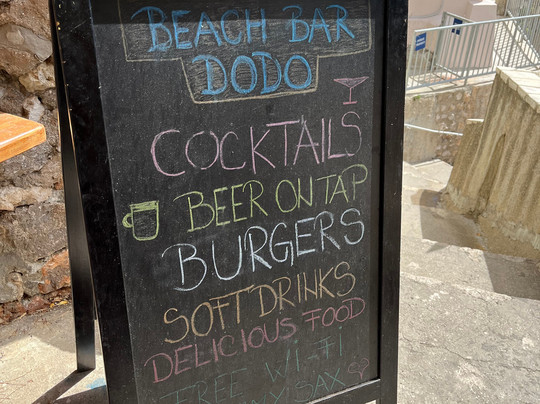 BEACH BAR
DODO
COCKTAILS
BEER ON TAP
BURGERS
SOFT DRINKS
DELICIOUS FOOD
FREE WI-FI
SAX